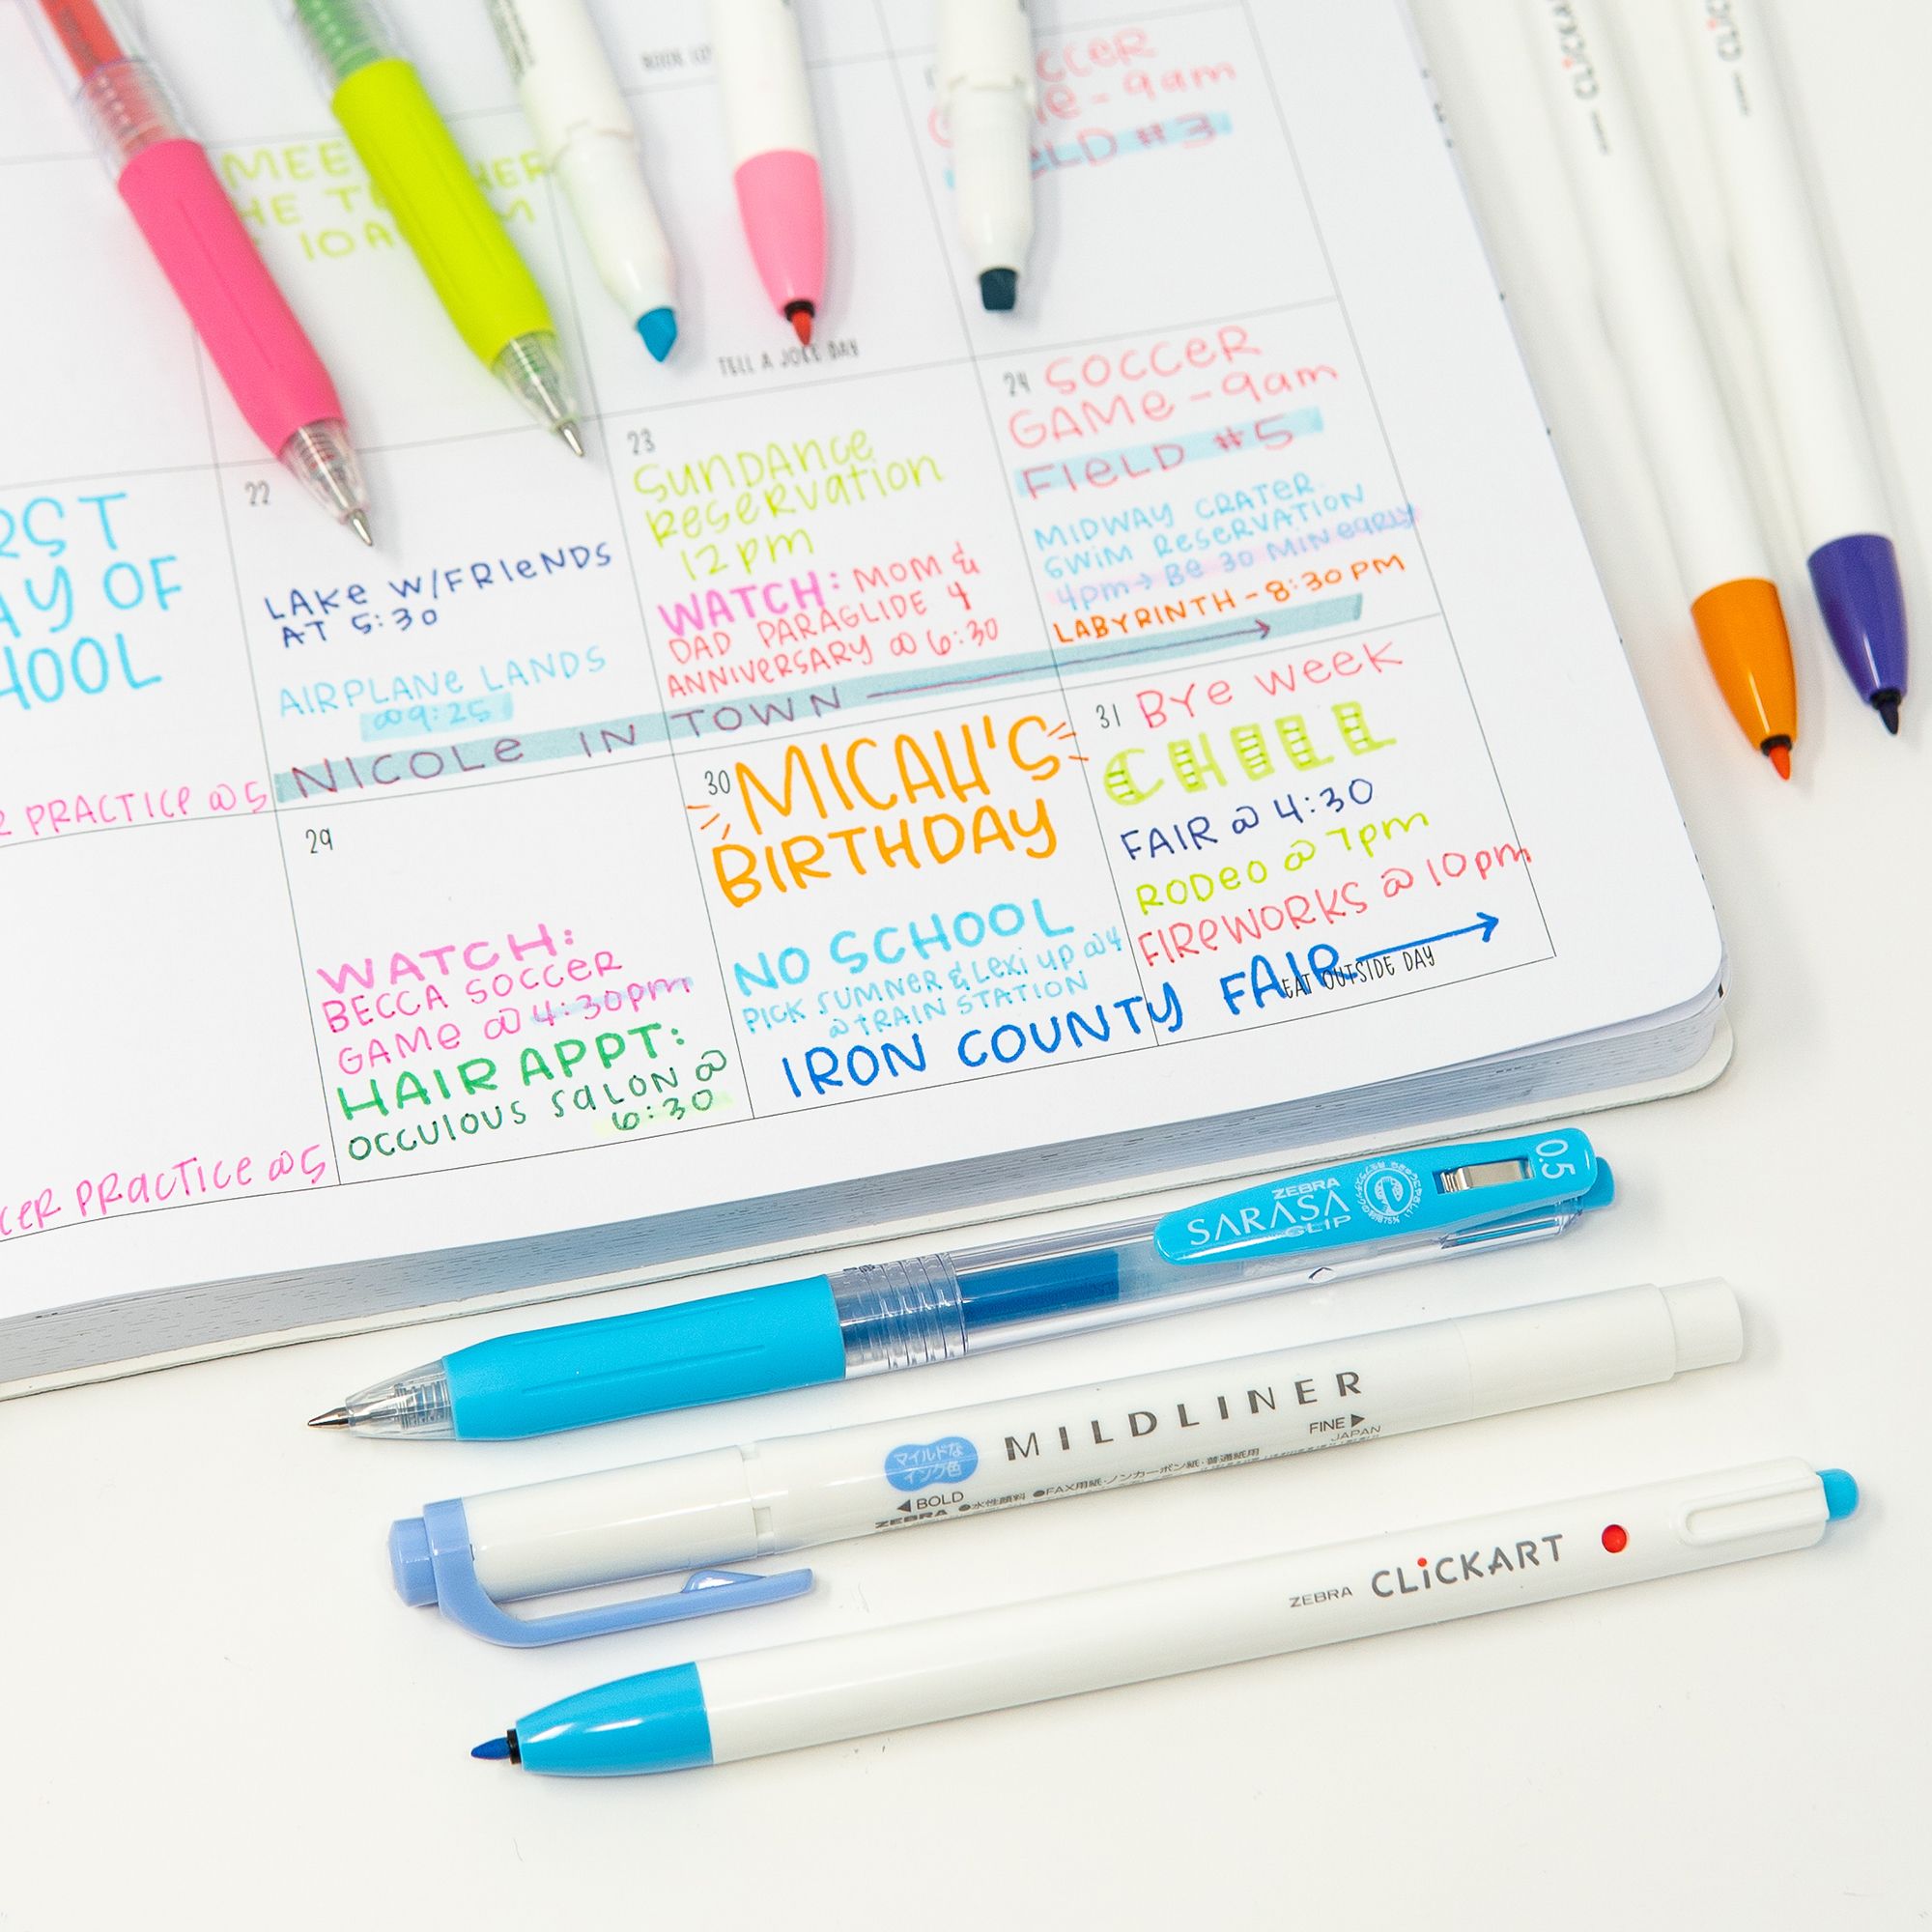 BOOK LO
CCER
ME - 9am
ELD #3
MEE HER
HE T
10A M
TELL A JOKE DAY
RST
AY OF
HOOL
R PRACTICE @5
22
LAKE W/FRIENDS
AT 5:30
AIRPLANE LANDS
@9:25
NICOLE IN TOWN
23
SUNDANCE
RESERVATION
12pm
WATCH: MOM &
DAD PARAGLIDE 4
ANNIVERSARY @ 6:30
24 SOCCER
GAME - 9am
FIELD #5
MIDWAY CRATER
SWIM RESERVATION
4pm → BE 30 MIN EARLY
LABYRINTH - 8:30 PM
CER PRACTICE @5
29
WATCH:
BECCA SOCCER
GAME @ 4:30pm
HAIR APPT:
OCCULOUS SALON @
6:30
30 MICAH'S
BIRTHDAY
NO SCHOOL
PICK SUMNER & LEXI UP @4
@ TRAIN STATION
IRON COUNTY FAIR →
31 BYE WEEK
CHILL
FAIR @ 4:30
RODEO @ 7pm
FIREWORKS @ 10pm
EAT OUTSIDE DAY
CLiCKA
CLiC
ZEBRA
SARASA
CLIP
0.5
マイルドな
インク色
MILDLINER
◀BOLD
FINE▶
JAPAN
ZEBRA ●水性顔料 ●FAX用紙・ノンカーボン紙・普通紙用
ZEBRA CLiCKART